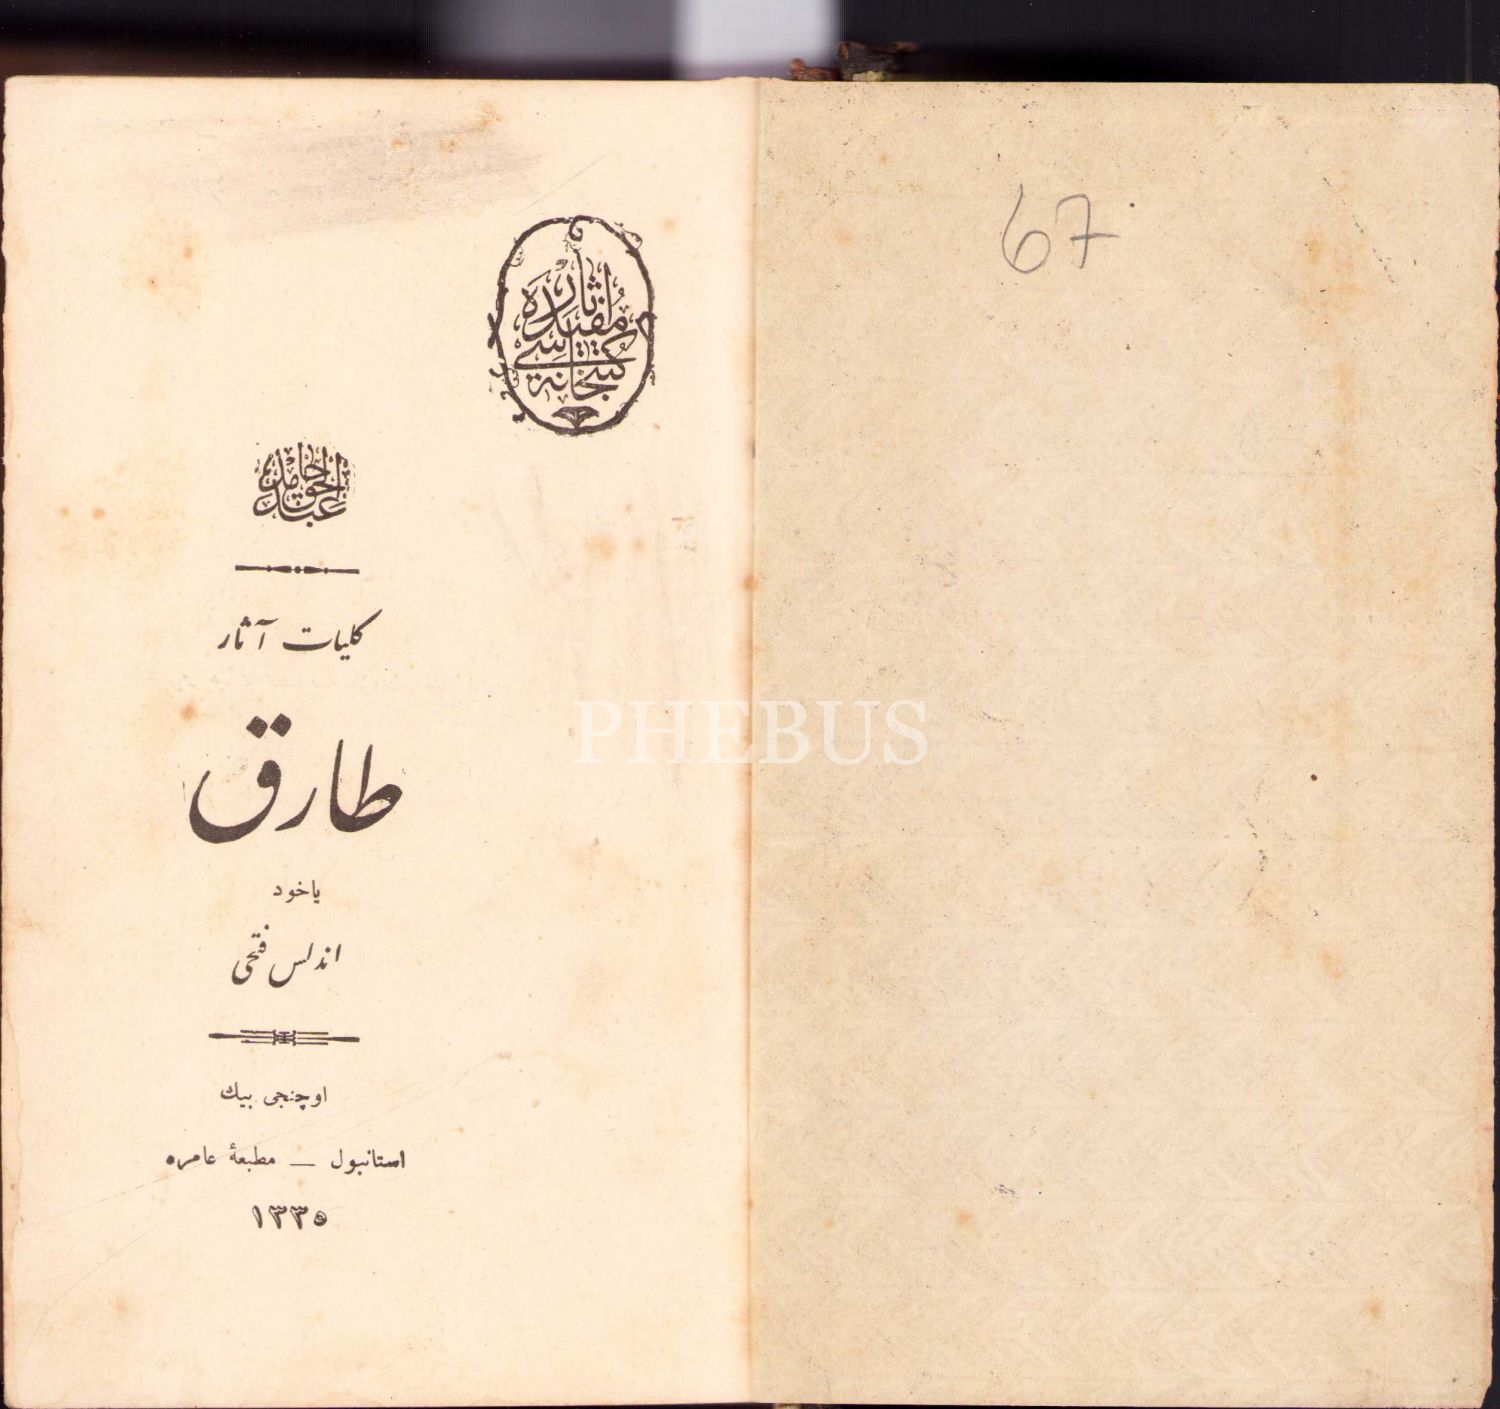 67
آثار مفيده
كتبخانه سى
عبد الحق حامد
كليات آثار
طارق
ياخود
اندلس فتحى
اوچنجى بيك
استانبول — مطبعۀ عامره
١٣٣٥
PHEBUS